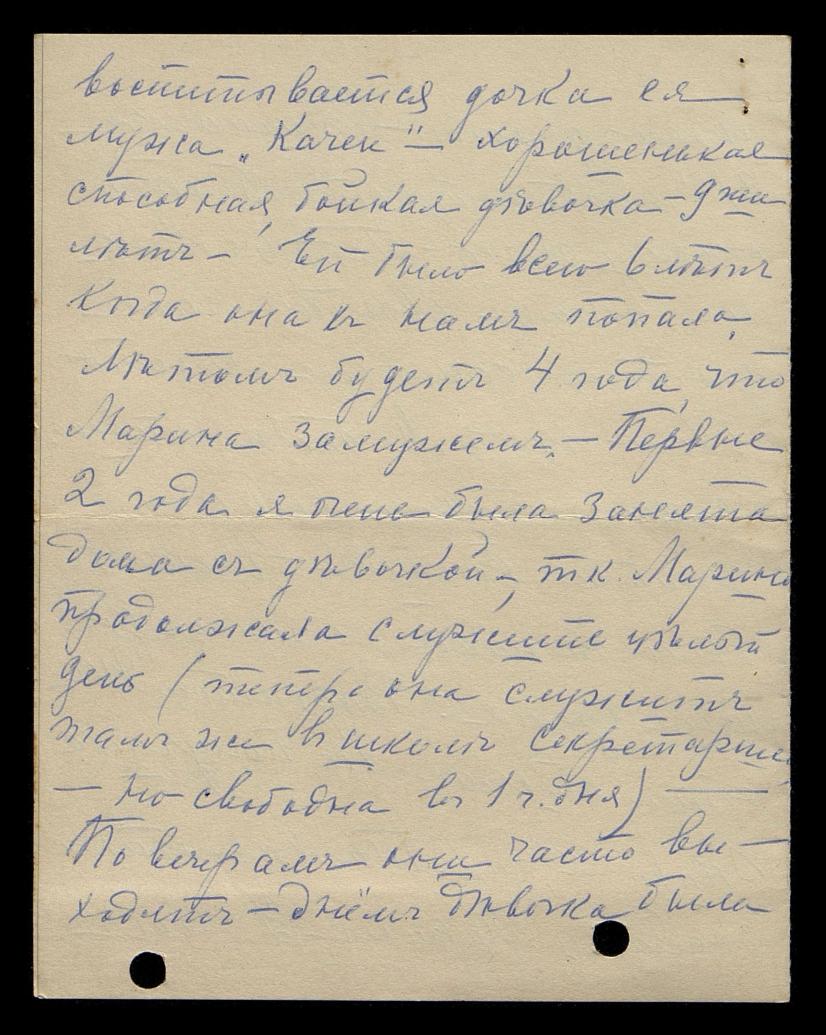 воспитывается дочка ея
мужа „Качек" — хорошенькая
способная, бойкая дѣвочка — 9ти
лѣтъ — Ей было всего 6 лѣтъ
когда она къ намъ попала.
Лѣтомъ будетъ 4 года, что
Марина замужемъ. — Первые
2 года я очень была занята
дома съ дѣвочкой —, т.к. Марина
продолжала служить цѣлый
день (теперь она служитъ
тамъ же въ школѣ секретаршей,
— но свободна въ 1 ч. дня) —
По вечерамъ они часто вы—
ходятъ — днёмъ дѣвочка была